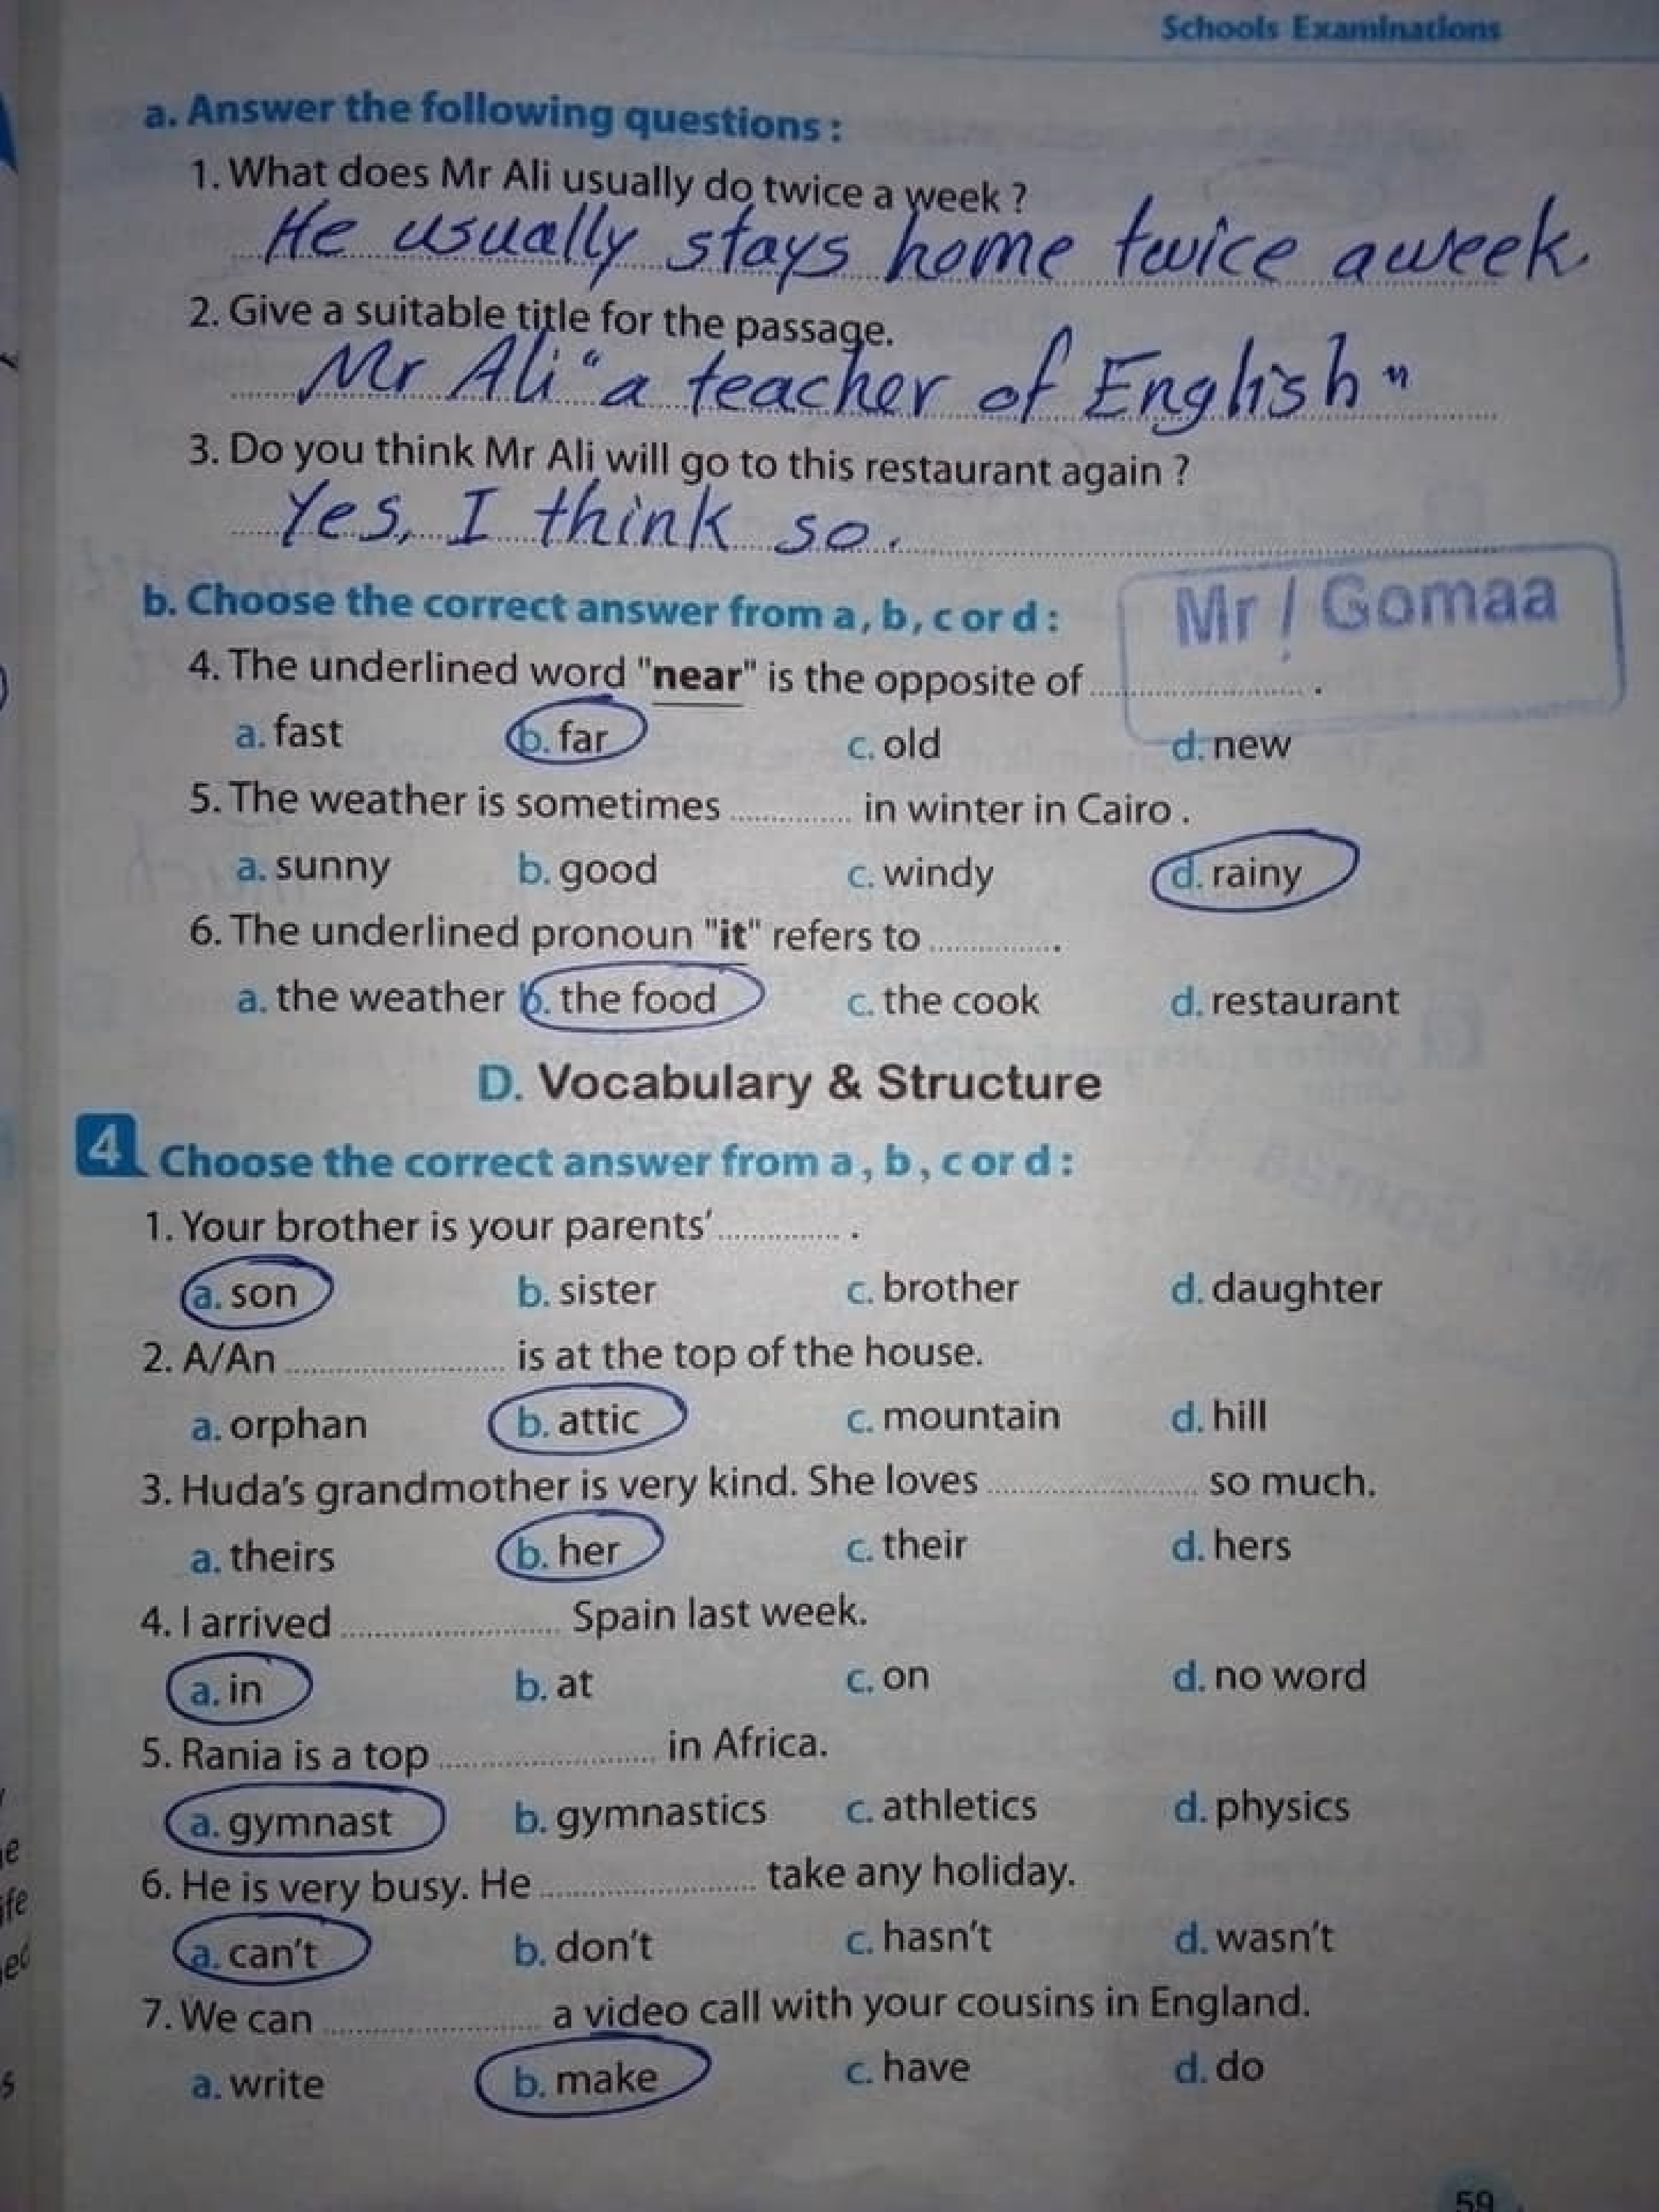 Schools Examinations
a. Answer the following questions :
1. What does Mr Ali usually do twice a week ?
He usually stays home twice a week.
2. Give a suitable title for the passage.
Mr Ali "a teacher of English"
3. Do you think Mr Ali will go to this restaurant again ?
Yes, I think so.
b. Choose the correct answer from a, b, c or d :
Mr / Gomaa
4. The underlined word "near" is the opposite of .................... .
a. fast b. far c. old d. new
5. The weather is sometimes ............ in winter in Cairo .
a. sunny b. good c. windy d. rainy
6. The underlined pronoun "it" refers to ............ .
a. the weather b. the food c. the cook d. restaurant
D. Vocabulary & Structure
4 Choose the correct answer from a, b, c or d :
1. Your brother is your parents' ............ .
a. son b. sister c. brother d. daughter
2. A/An .................... is at the top of the house.
a. orphan b. attic c. mountain d. hill
3. Huda's grandmother is very kind. She loves .................... so much.
a. theirs b. her c. their d. hers
4. I arrived .................... Spain last week.
a. in b. at c. on d. no word
5. Rania is a top .................... in Africa.
a. gymnast b. gymnastics c. athletics d. physics
6. He is very busy. He .................... take any holiday.
a. can't b. don't c. hasn't d. wasn't
7. We can .................... a video call with your cousins in England.
a. write b. make c. have d. do
59